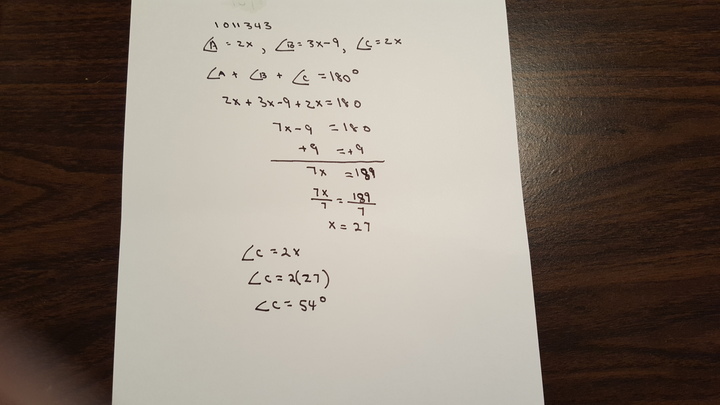 1011343
∠A = 2x, ∠B = 3x-9, ∠C = 2x
∠A + ∠B + ∠C = 180°
2x + 3x-9 + 2x = 180
7x-9 = 180
+9 =+9
7x = 189
7x/7 = 189/7
x = 27
∠C = 2x
∠C = 2(27)
∠C = 54°